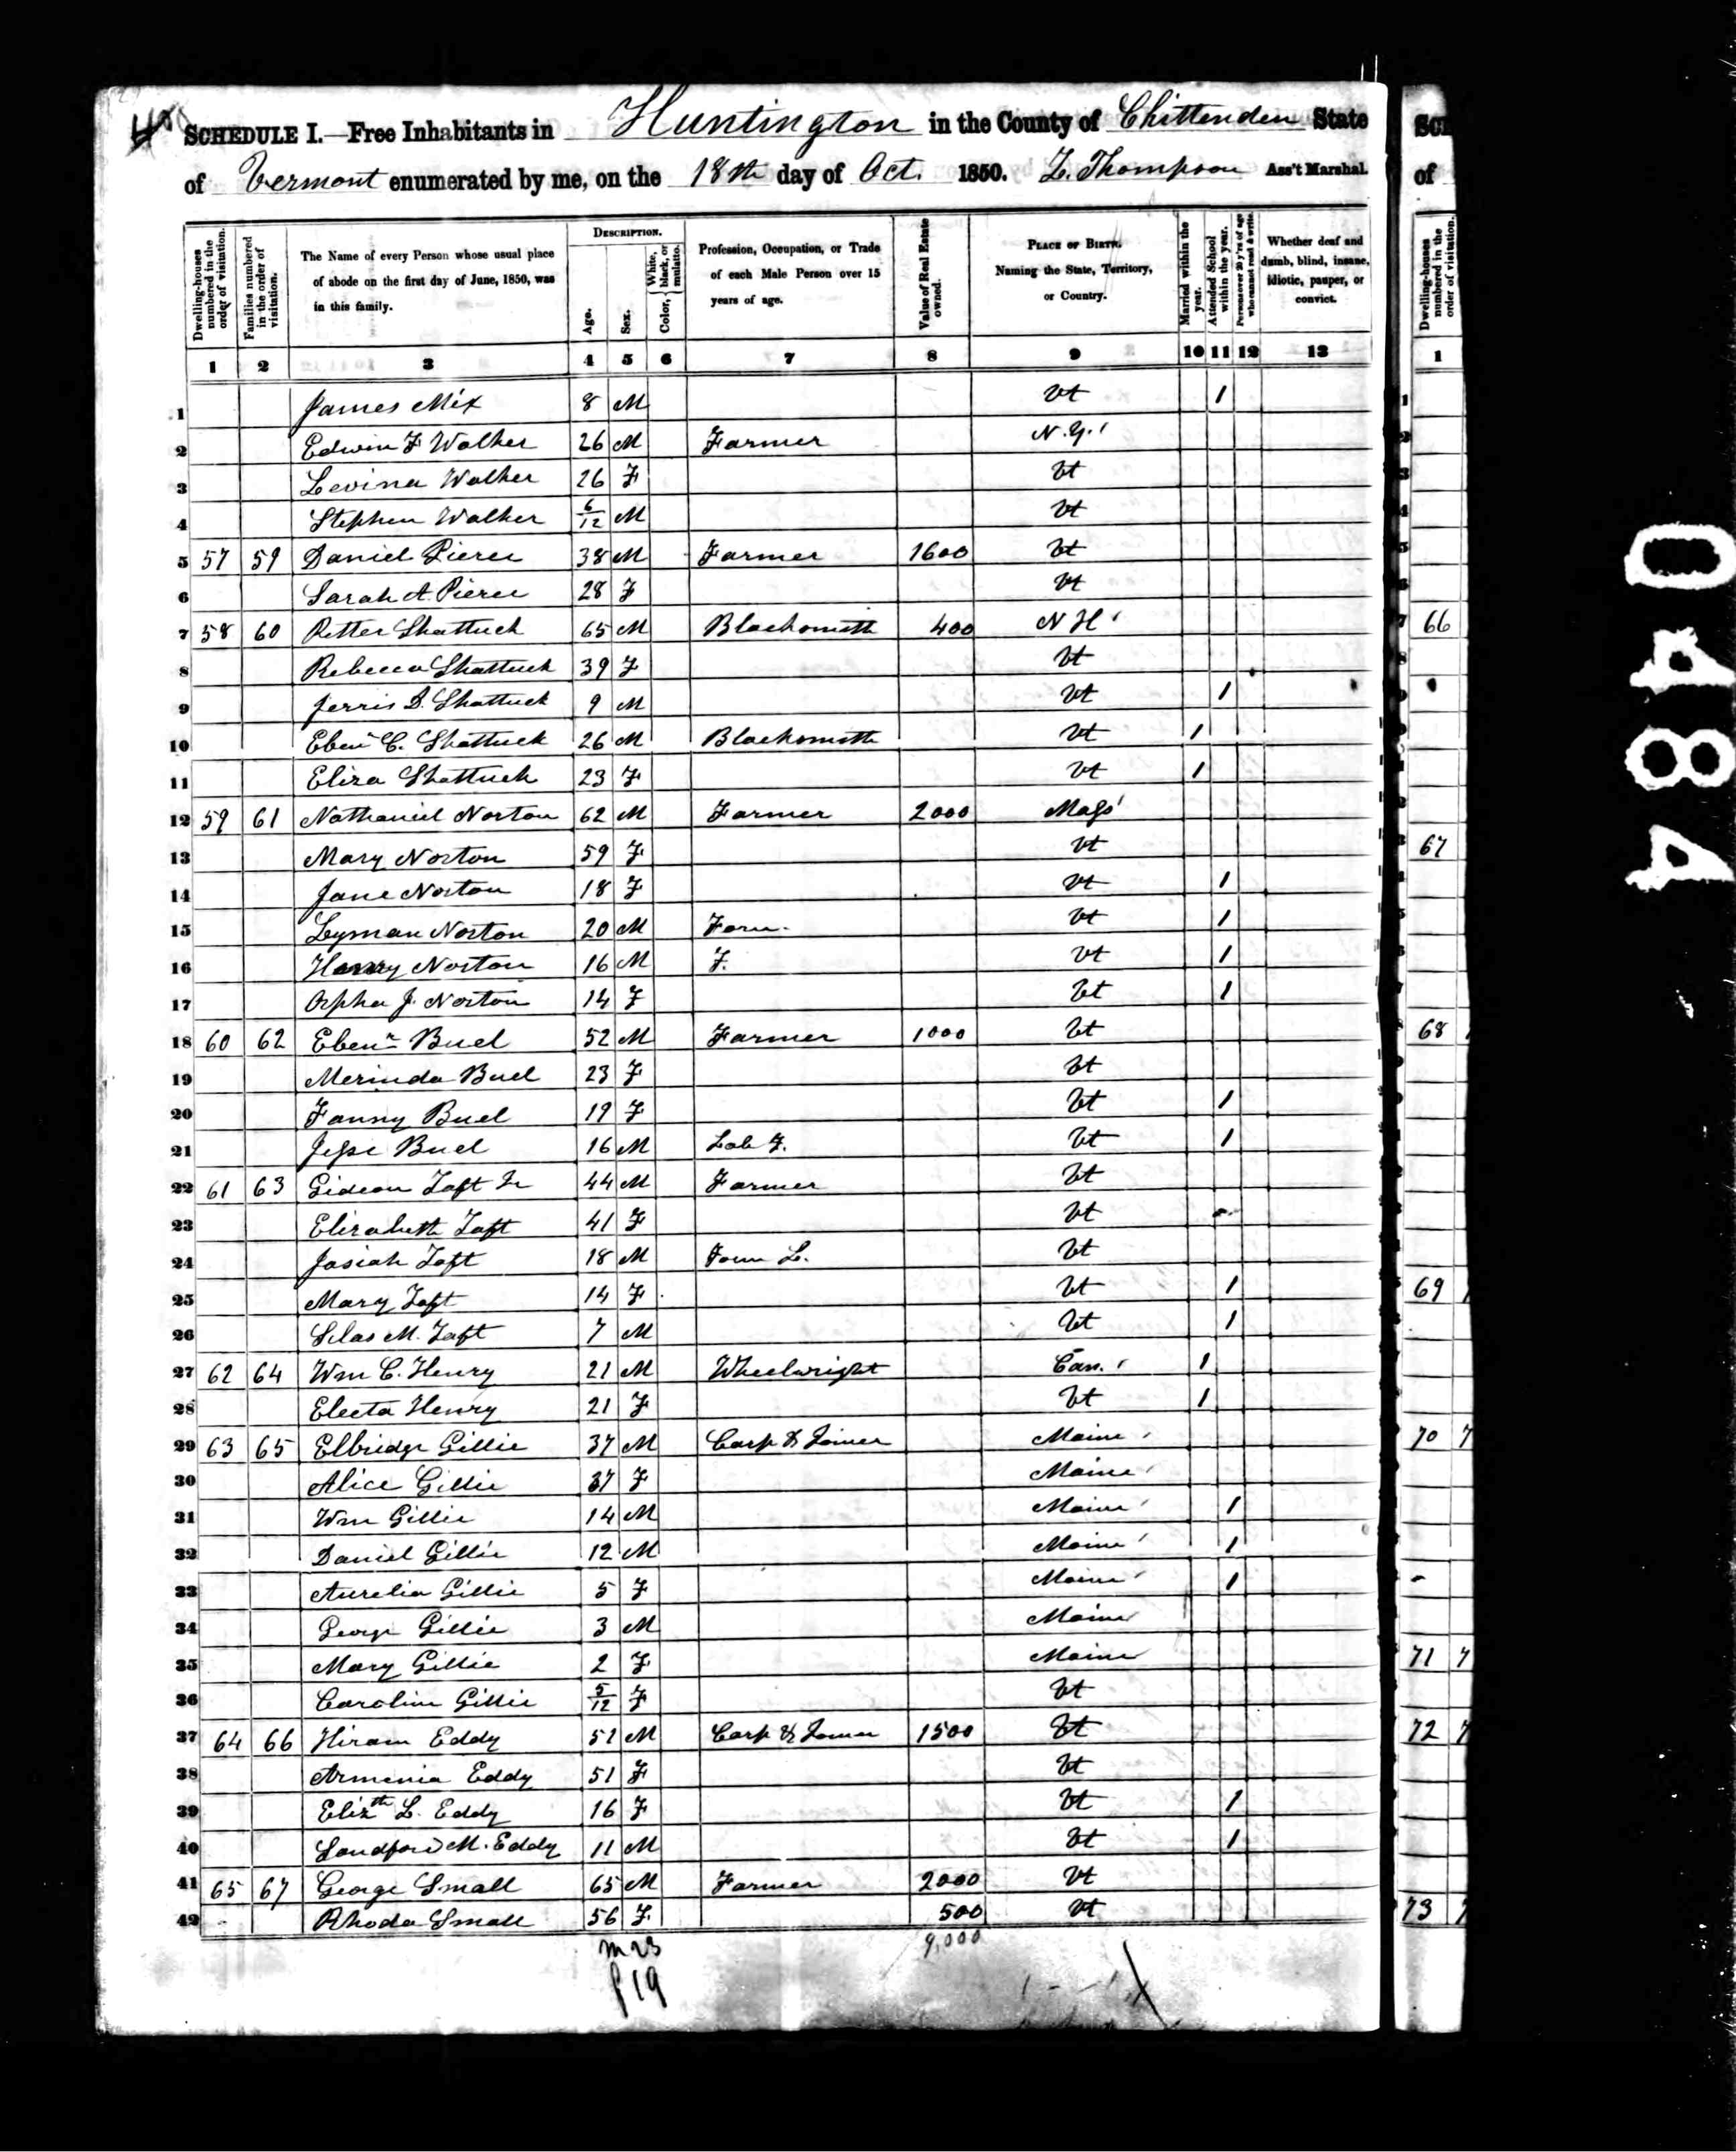 SCHEDULE I.—Free Inhabitants in Huntington in the County of Chittenden State
of Vermont enumerated by me, on the 18th day of Oct. 1850. Z. Thompson Ass't Marshal.
Dwelling-houses numbered in the order of visitation.
Families numbered in the order of visitation.
The Name of every Person whose usual place of abode on the first day of June, 1850, was in this family.
DESCRIPTION.
Age.
Sex.
Color, { White, black, or mulatto.
Profession, Occupation, or Trade of each Male Person over 15 years of age.
Value of Real Estate owned.
PLACE OF BIRTH. Naming the State, Territory, or Country.
Married within the year.
Attended School within the year.
Persons over 20 y'rs of age who cannot read & write.
Whether deaf and dumb, blind, insane, idiotic, pauper, or convict.
1 2 3 4 5 6 7 8 9 10 11 12 13
1 James Mix 8 M Vt 1
2 Edwin F Walker 26 M Farmer N.Y.
3 Levina Walker 26 F Vt
4 Stephen Walker 6/12 M Vt
5 57 59 Daniel Pierce 38 M Farmer 1600 Vt
6 Sarah A. Pierce 28 F Vt
7 58 60 Ritter Shattuck 65 M Blacksmith 400 N H
8 Rebecca Shattuck 39 F Vt
9 Jerris D. Shattuck 9 M Vt 1
10 Eben C. Shattuck 26 M Blacksmith Vt 1
11 Eliza Shattuck 23 F Vt 1
12 59 61 Nathaniel Norton 62 M Farmer 2000 Mass
13 Mary Norton 59 F Vt
14 Jane Norton 18 F Vt 1
15 Lyman Norton 20 M Farm. Vt 1
16 Henry Norton 16 M F. Vt 1
17 Orpha J. Norton 14 F Vt 1
18 60 62 Ebenr Buel 52 M Farmer 1000 Vt
19 Merinda Buel 23 F Vt
20 Fanny Buel 19 F Vt 1
21 Jesse Buel 16 M Lab F. Vt 1
22 61 63 Gideon Taft Jr 44 M Farmer Vt
23 Elizabeth Taft 41 F Vt
24 Josiah Taft 18 M Farm L. Vt
25 Mary Taft 14 F Vt 1
26 Silas M. Taft 7 M Vt 1
27 62 64 Wm C. Henry 21 M Wheelwright Can. 1
28 Electa Henry 21 F Vt 1
29 63 65 Elbridge Gillie 37 M Carp & Joiner Maine
30 Alice Gillie 37 F Maine
31 Wm Gillie 14 M Maine 1
32 Daniel Gillie 12 M Maine 1
33 Aurelia Gillie 5 F Maine 1
34 George Gillie 3 M Maine
35 Mary Gillie 2 F Maine
36 Caroline Gillie 5/12 F Vt
37 64 66 Hiram Eddy 51 M Carp & Joiner 1500 Vt
38 Armenia Eddy 51 F Vt
39 Elizth L. Eddy 16 F Vt 1
40 Sandford M. Eddy 11 M Vt 1
41 65 67 George Small 65 M Farmer 2000 Vt
42 Rhoda Small 56 F 500 Vt
m 23
f 19
9,000
of
Dwelling-houses numbered in the order of visitation.
1
66
67
68
69
70 7
71 7
72 7
73 7
048A